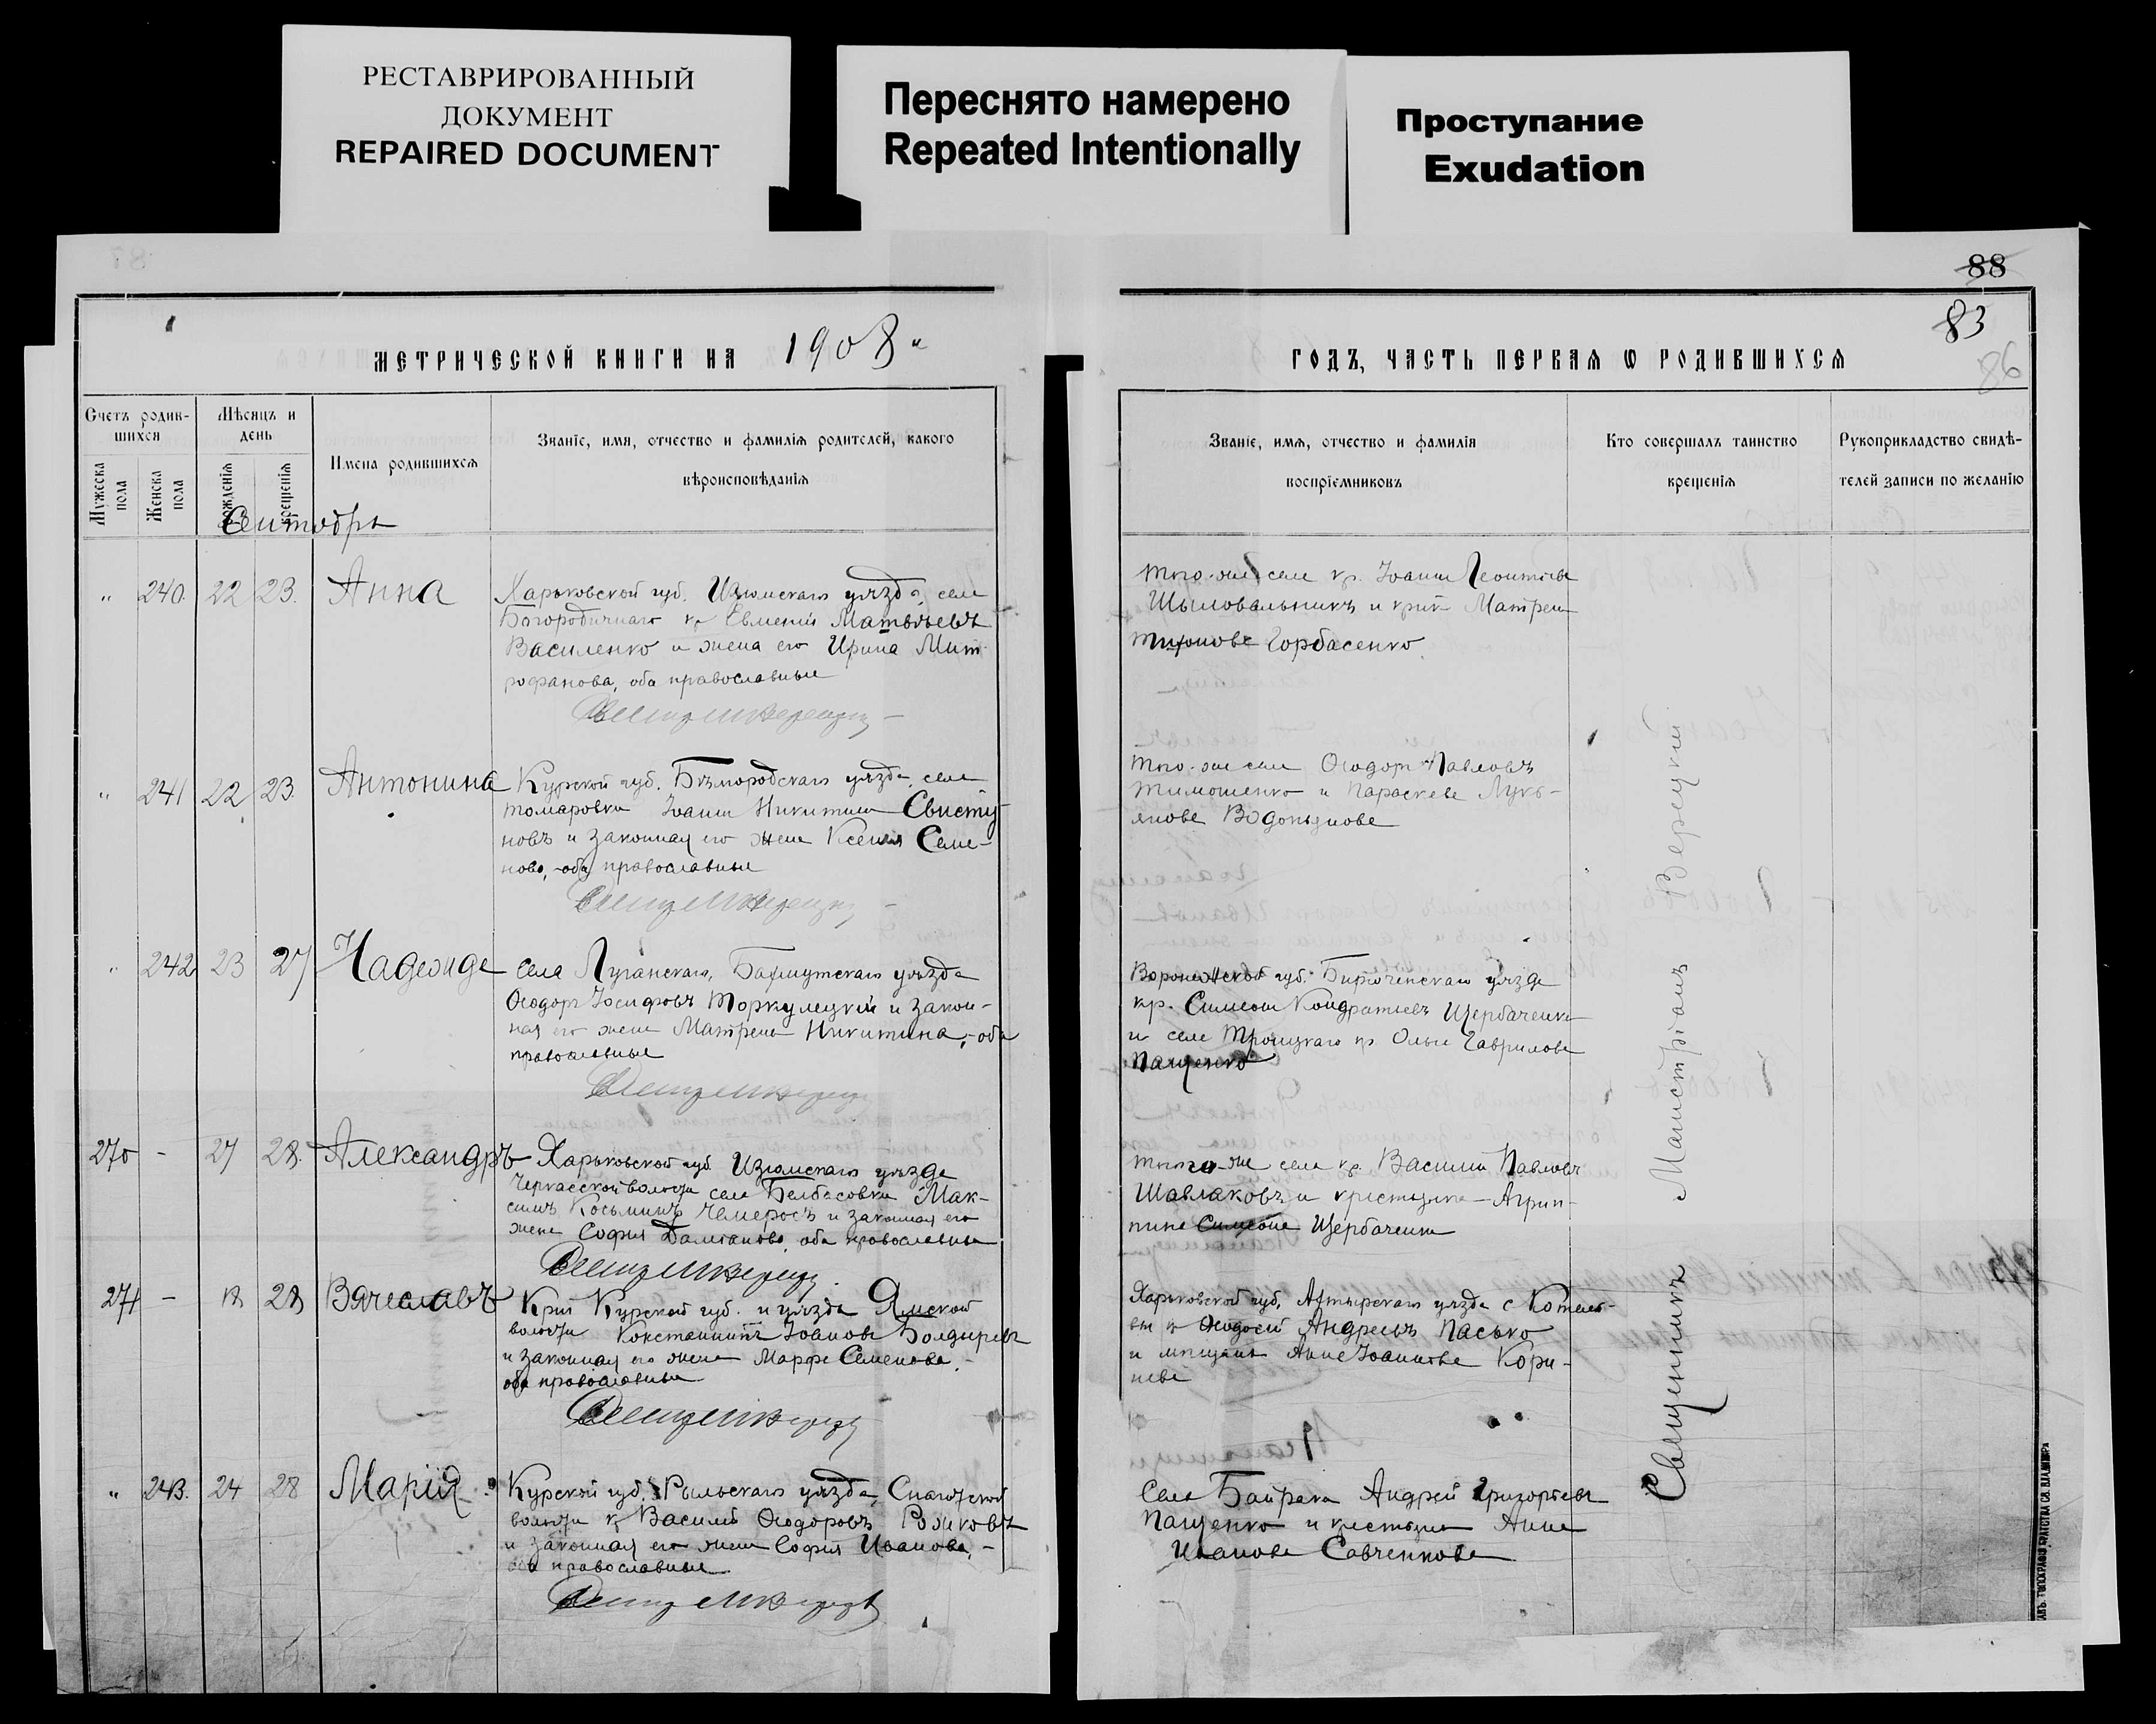 РЕСТАВРИРОВАННЫЙ
ДОКУМЕНТ
REPAIRED DOCUMENT
Переснято намерено
Repeated Intentionally
Проступание
Exudation
88
83
86
МЕТРИЧЕСКОЙ КНИГИ НА 1908
Счетъ родив-
шихся
Мѣсяцъ и
день
Мужеска
пола
Женска
пола
рожденія
крещенія
Имена родившихся
Званіе, имя, отчество и фамилія родителей, какого
вѣроисповѣданія
240. 22 23. Анна
Харьковской губ. Изюмскаго уѣзда, села
Богородичнаго кр Евменій Матвѣевъ
Василенко и жена его Ирина Мит-
рофанова, оба православные
241 22 23 Антонина
Курской губ. Бѣлгородскаго уѣзда, села
Томаровки Іоаннъ Никитинъ Свисту-
новъ и законная его жена Ксенія Семе-
нова, оба православные
242 23 27 Надежда
Села Луганскаго, Бахмутскаго уѣзда
Ѳеодоръ Іосифовъ Торкулецкій и закон-
ная его жена Матрена Никитина, оба
православные
270 - 27 28. Александръ
Харьковской губ. Изюмскаго уѣзда
Черкасской волости села Белбасовки Мак-
симъ Косьминъ Чемеросъ и законная его
жена Софія оба православные
271 - 28 Вячеславъ
Курской губ. и уѣзда Ямской
волости Константинъ Іоановъ Болдыревъ
и законная его жена Марфа Семенова,
оба православные
243. 24 28 Марія
Курской губ. Рыльскаго уѣзда,
волости кр Василій Ѳеодоровъ Рожковъ
и законная его жена Софія Иванова,
оба православные
ГОДЪ, ЧАСТЬ ПЕРВАЯ Ѡ РОДИВШИХСЯ
Званіе, имя, отчество и фамилія
воспріемниковъ
Кто совершалъ таинство
крещенія
Рукоприкладство свидѣ-
телей записи по желанію
того-же села кр. Іоаннъ Леонтьевъ
Шыловальникъ и Матрена
Горбасенко
того-же села Ѳеодоръ Павловъ
Тимошенко и Параскева Лукь-
янова Водопьянова
Воронежской губ. Бирюченскаго уѣзда
кр. Симеонъ Кондратьевъ Щербаченко
и села Троицкаго кр Ольга Гаврилова
Пащенко
того-же села кр. Василій Павловъ
Шавлаковъ и крестьянка Агрип-
пина Щербаченко
Харьковской губ. Ахтырскаго уѣзда с Котель-
вы кр Ѳеодосій Андреевъ Пасько
и мѣщанка Анна Іоаннова Кори-
нева
Села Байрака Андрей Григорьевъ
Пащенко и крестьянка Анна
Иванова Савченкова
Священникъ Верецкій